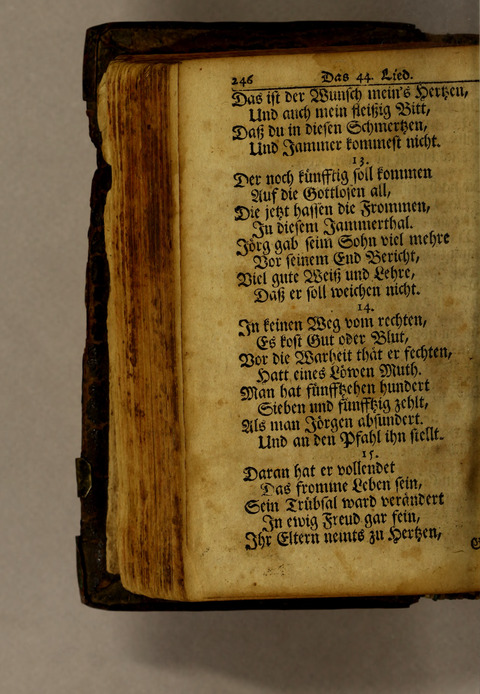 246 Das 44. Lied.
Das ist der Wunsch mein's Hertzen,
Und auch mein fleißig Bitt,
Daß du in diesen Schmertzen,
Und Jammer kommest nicht.
13.
Der noch künfftig soll kommen
Auf die Gottlosen all,
Die jetzt hassen die Frommen,
In diesem Jammerthal.
Jörg gab seim Sohn viel mehre
Vor seinem End Bericht,
Viel gute Weiß und Lehre,
Daß er soll weichen nicht.
14.
In keinen Weg vom rechten,
Es kost Gut oder Blut,
Vor die Warheit thät er fechten,
Hatt eines Löwen Muth.
Man hat fünfftzehen hundert
Sieben und fünfftzig zehlt,
Als man Jörgen absundert.
Und an den Pfahl ihn stellt.
15.
Daran hat er vollendet
Das fromme Leben sein,
Sein Trübsal ward verändert
In ewig Freud gar fein,
Ihr Eltern nemts zu Hertzen,